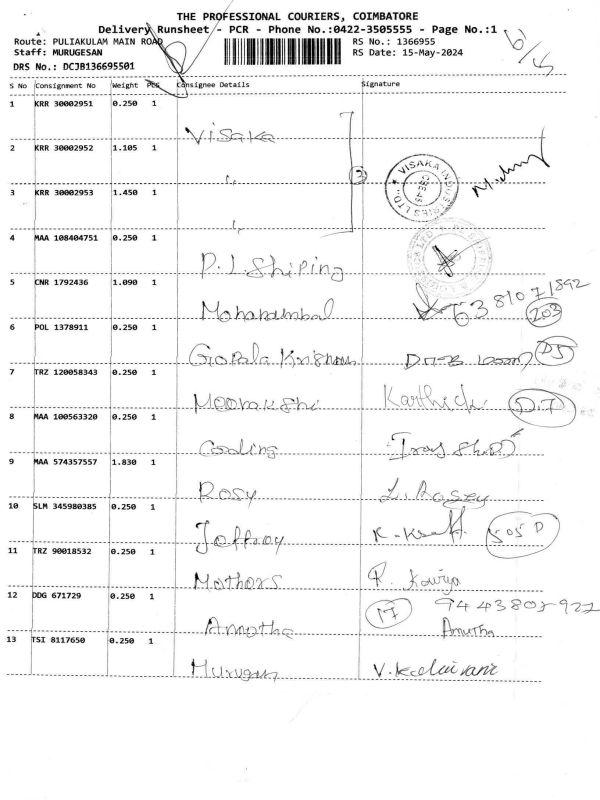 THE PROFESSIONAL COURIERS, COIMBATORE
Delivery Runsheet - PCR - Phone No.:0422-3505555 - Page No.:1
Route: PULIAKULAM MAIN ROAD RS No.: 1366955
Staff: MURUGESAN RS Date: 15-May-2024
DRS No.: DCJB136695501
S No Consignment No Weight PCS Consignee Details Signature
1 KRR 30002951 0.250 1
Visaka
2 KRR 30002952 1.105 1
"
3 KRR 30002953 1.450 1
"
VISAKA INDUSTRIES LTD.
4 MAA 108404751 0.250 1
P.L. Shiping
5 CNR 1792436 1.090 1
203
6 POL 1378911 0.250 1
Gopala Krishnan D5
7 TRZ 120058343 0.250 1
Karthick D.7
8 MAA 100563320 0.250 1
9 MAA 574357557 1.830 1
Rosy L. Rosey
10 SLM 345980385 0.250 1
505 D
11 TRZ 90018532 0.250 1
Mothors
12 DDG 671729 0.250 1
17
Amutha
13 TSI 8117650 0.250 1
Murugan